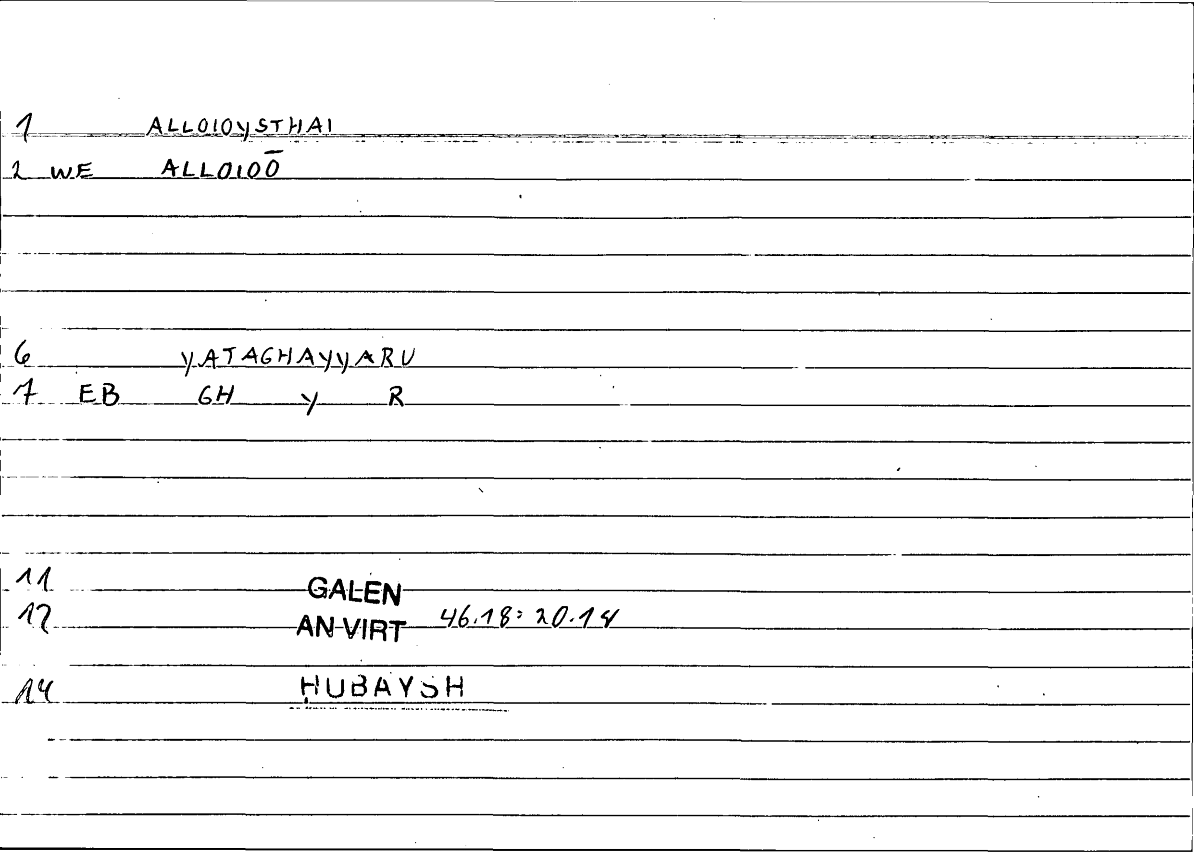 1 ALLOIOYSTHAI
2 WE ALLOIOŌ
6 YATAGHAYYARU
7 EB GH Y R
11 GALEN
12 AN VIRT 46.18: 20.14
14 ḤUBAYSH